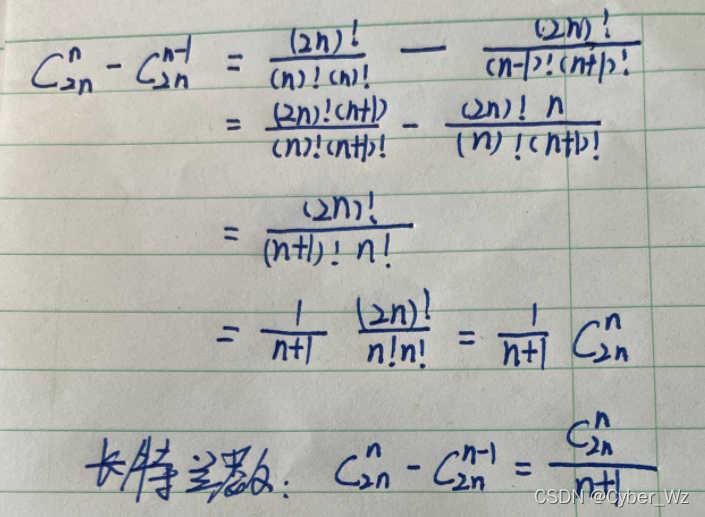 C_{2n}^{n} - C_{2n}^{n-1} = \frac{(2n)!}{(n)!(n)!} - \frac{(2n)!}{(n-1)!(n+1)!}
= \frac{(2n)!(n+1)}{(n)!(n+1)!} - \frac{(2n)! n}{(n)!(n+1)!}
= \frac{(2n)!}{(n+1)! n!}
= \frac{1}{n+1} \frac{(2n)!}{n!n!} = \frac{1}{n+1} C_{2n}^{n}
C_{2n}^{n} - C_{2n}^{n-1} = \frac{C_{2n}^{n}}{n+1}
CSDN @Cyber_Wz